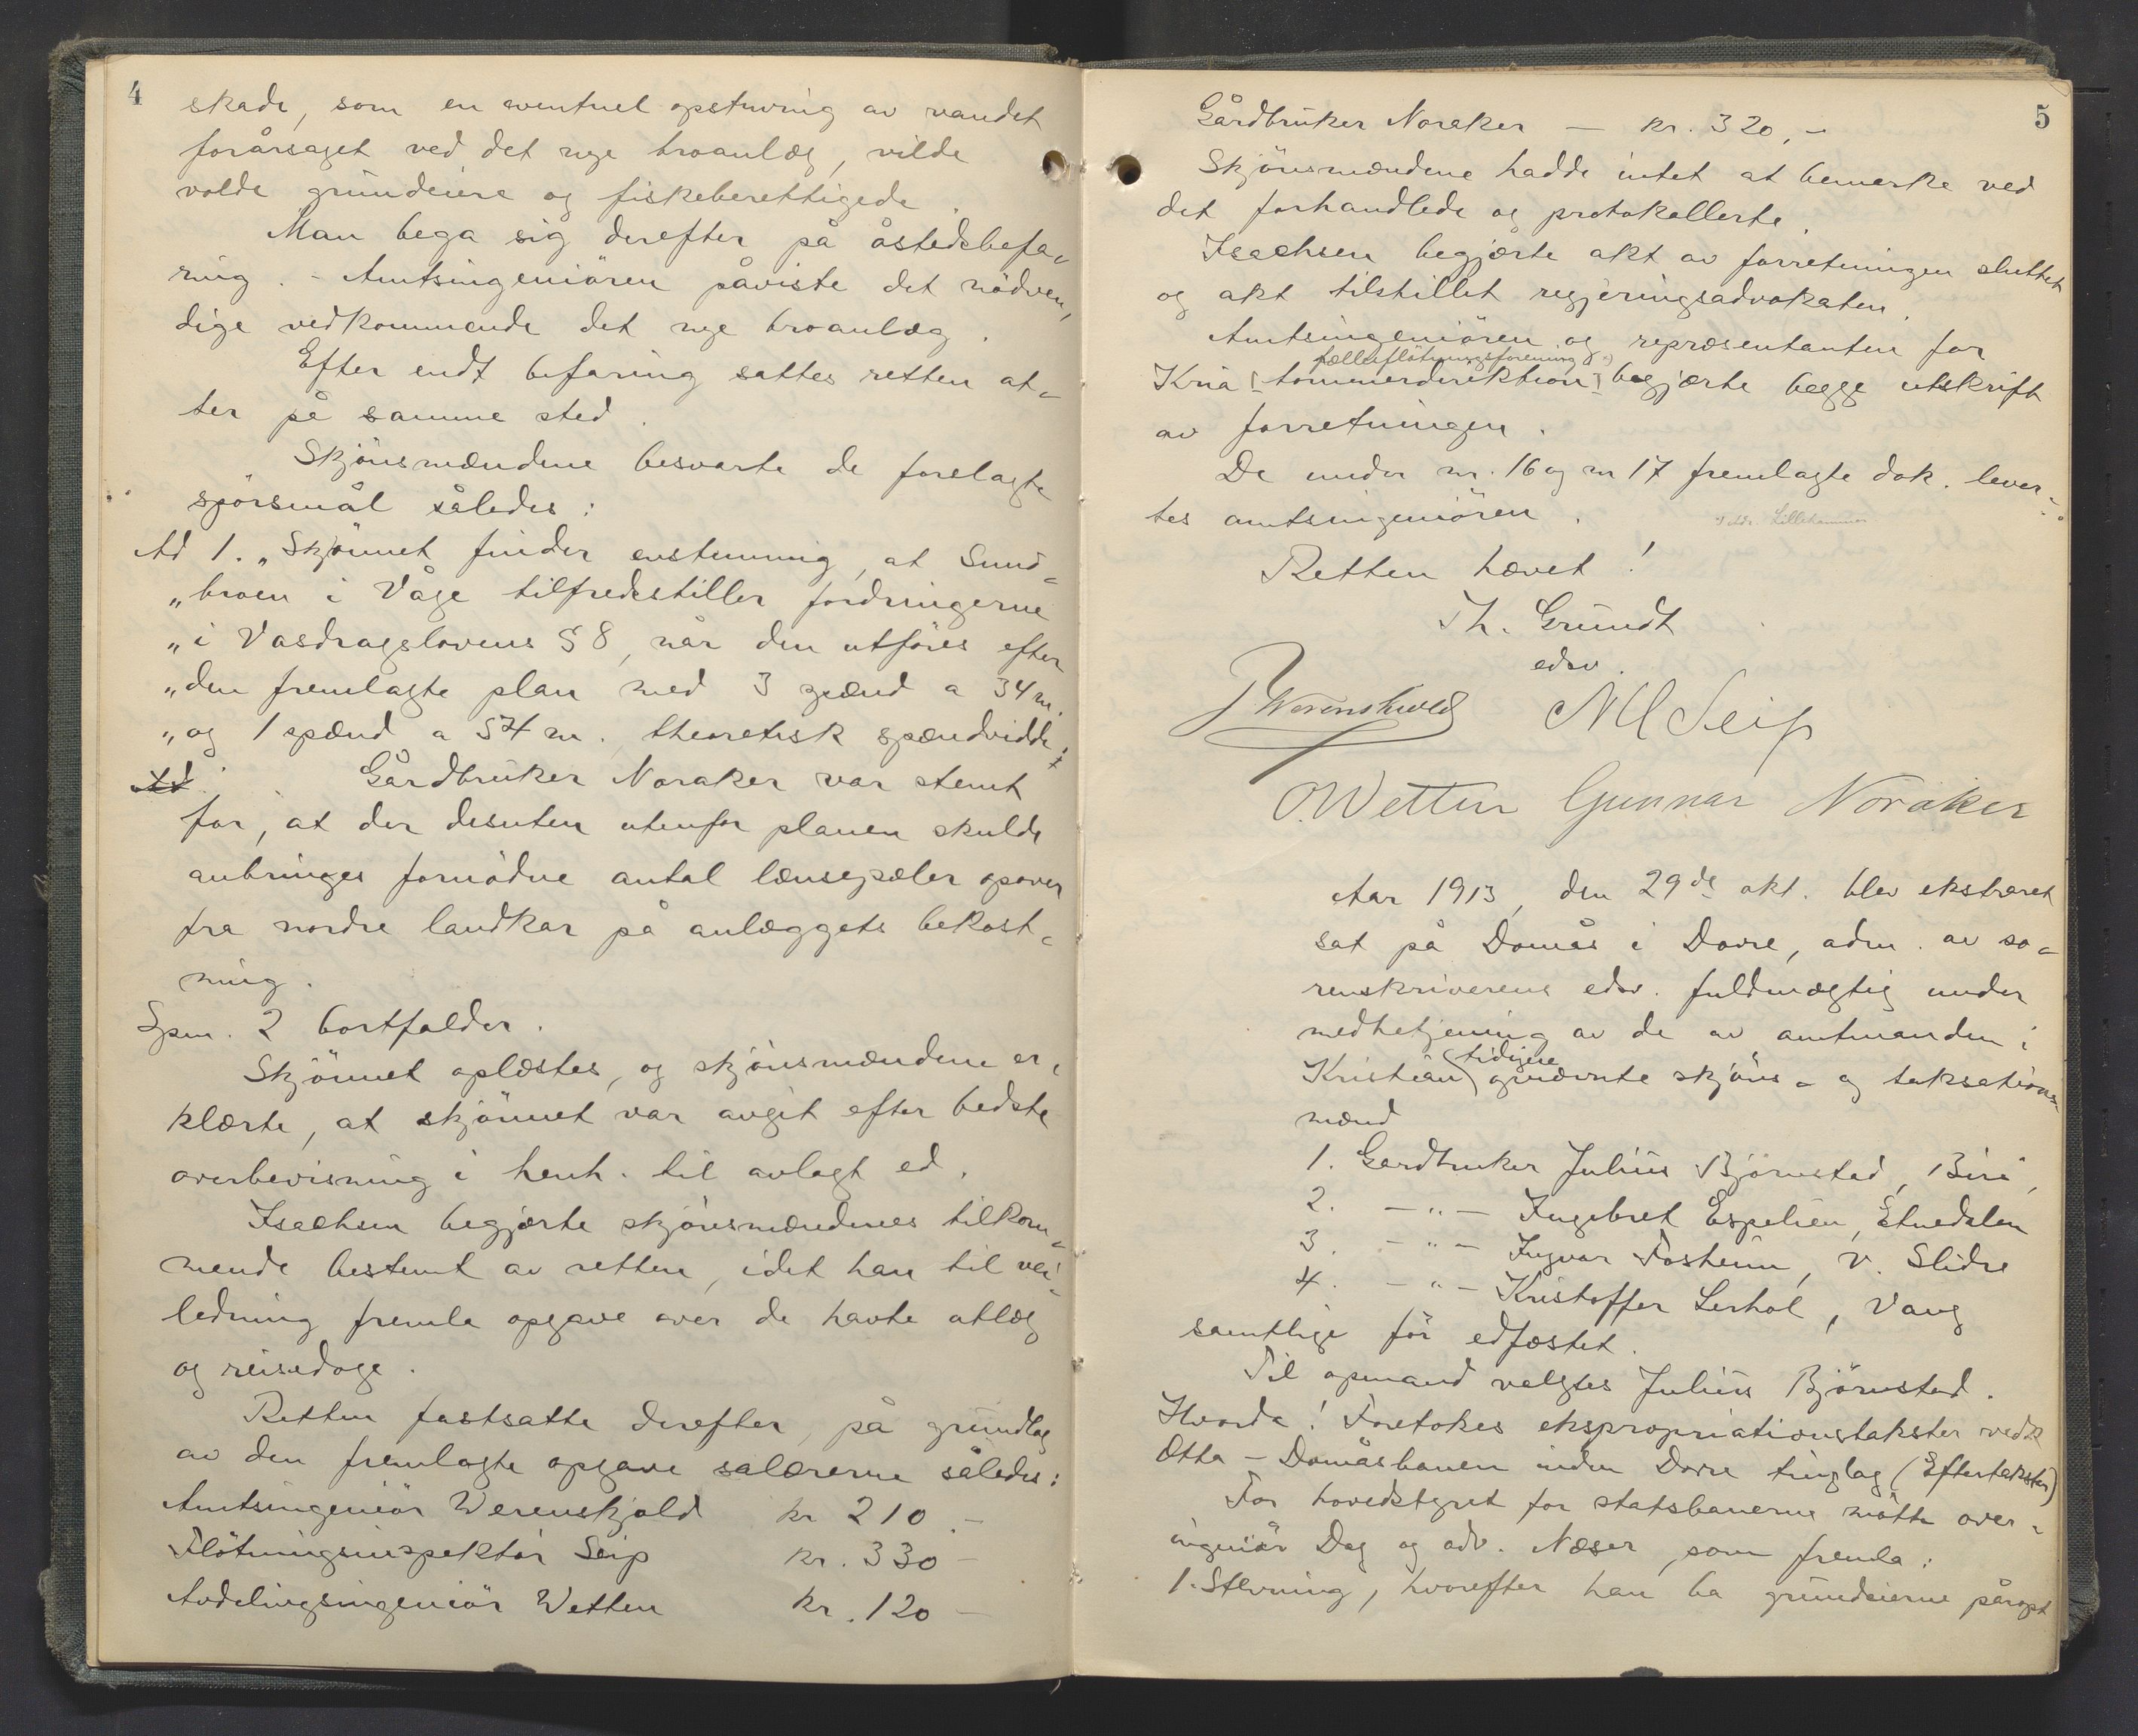 4
skade, som en eventuel opstuving av vandet
forårsaget ved det nye broanlæg, vilde
volde grundeiere og fiskeberettigede.
Man bega sig derefter på åstedsbefa-
ring. - Amtsingeniören påviste det nödven-
dige vedkommende det nye broanlæg.
Efter endt befaring sattes retten at-
ter på samme sted.
Skjönsmændene besvarte de forelagte
spörsmål således:
Ad 1. „Skjönnet finder enstemmig, at Sund-
„broen i Våge tilfredsstiller fordringerne
„i Vasdragslovens § 8, når den utföres efter
„den fremlagte plan med 3 spænd a 34 m.
„og 1 spænd a 54 m. theoretisk spændvidde.
Ad
Gårdbruker Noraker var stemt
for, at der desuten utenfor planen skulde
anbringes fornödne antal lænsepæler opover
fra nordre landkar på anlæggets bekost-
ning.
Spm. 2 bortfalder.
Skjönnet oplæstes, og skjönsmændene er-
klærte, at skjönnet var avgit efter bedste
overbevisning i henh. til avlagt ed.
Isachsen begjærte skjönsmændenes tilkom-
mende bestemt av retten, idet han til vei-
ledning fremla opgave over de havte utlæg
og reisedage.
Retten fastsatte derefter, på grundlag
av den fremlagte opgave salærerne således:
Amtsingeniör Werenskjold kr 210.-
Flötningsinspektör Seip kr. 330 -
Avdelingsingeniör Wetten kr. 120 -
5
Gårdbruker Noraker - kr. 320,-
Skjönsmændene hadde intet at bemerke ved
det forhandlede og protokollerte.
Isachsen begjærte akt av forretningen sluttet
og akt tilstillet regjeringsadvokaten.
Amtsingeniören og repræsentanten for
fællesflötningsforening
Kria [tommerdirektion] begjærte begge utskrift
av forretningen.
De under nr. 16 og nr 17 fremlagte dok. lever-
tes amtsingeniören.
Lillehammer
Retten hævet!
Th. Grundt
edsv.
Werenskiold M Seip
O. Wetten Gunnar Noraker
Aar 1913, den 29de okt. blev ekstraret
sat på Domås i Dovre, adm. av so-
renskriverens edsv. fuldmægtig under
medbetjening av de av amtmanden i
tidigere
Kristian opnævnte skjöns- og taksations-
mænd
1. Gardbruker Julius Björnstad, Biri,
2. -"- Ingebret Espelien, Etnedalen
3. -"- Ingvar Fosheim, V. Slidre
4. -"- Kristoffer Lerhol, Vang
samtlige för edfæstet.
Til opmand valgtes Julius Björnstad.
Hvorda! Foretokes ekspropriationstakster vedk
Otta - Domåsbanen inden Dovre tinglag (Eftertakster)
For hovedstyret for statsbanerne mötte over-
ingeniör Dag og adv. Næser, som fremla:
1. Stevning, hvorefter han ba grundeierne påropt